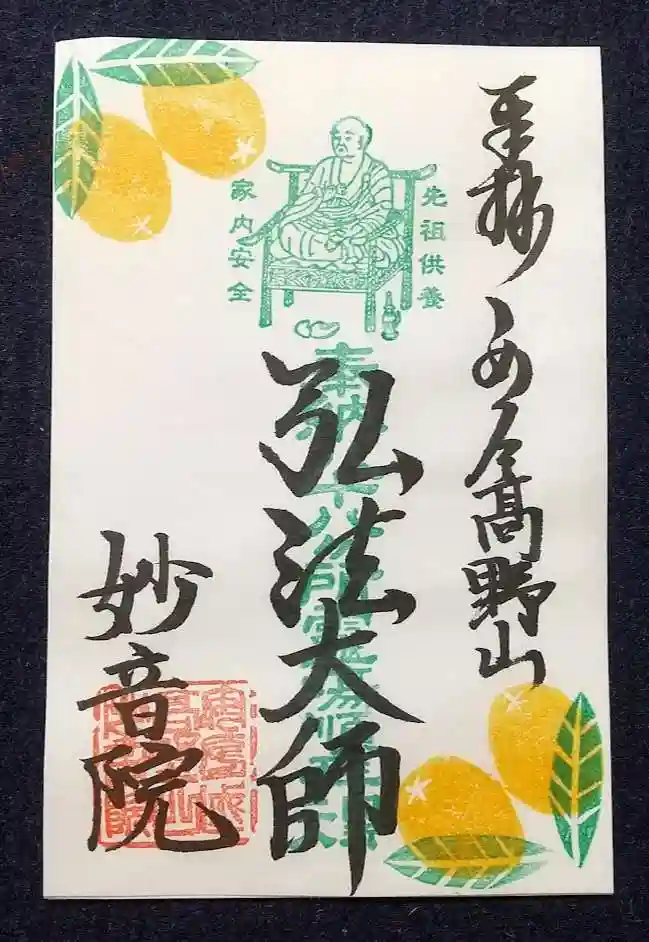 奉拝 安房高野山
先祖供養
家内安全
奉納
弘法大師
妙音院